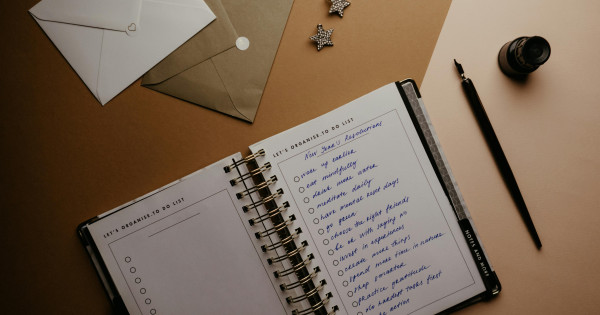 LET'S ORGANISE-TO DO LIST
LET'S ORGANISE-TO DO LIST
New Year's Resolutions
wake up earlier
eat mindfully
drink more water
meditate daily
have mental reset days
go green
choose the right friends
be ok with saying no
invest in experiences
create more things
spend more time in nature
shop smarter
practice gratitude
do hardest tasks first
action